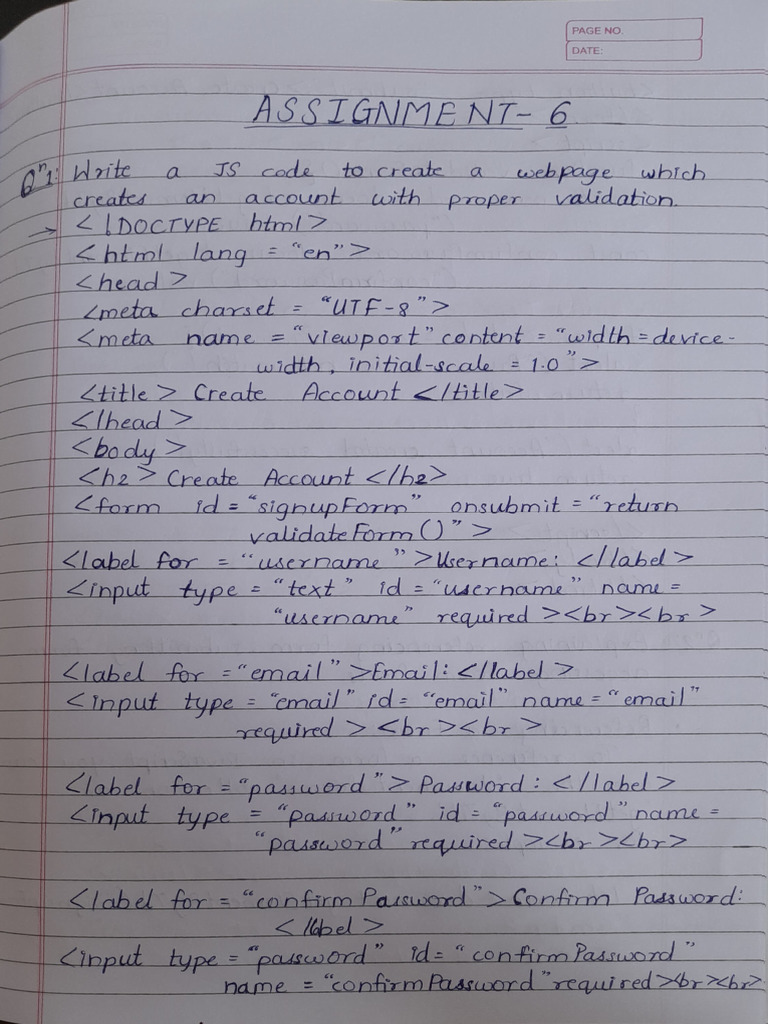 PAGE NO.
DATE:
ASSIGNMENT- 6
Qⁿ1: Write a JS code to create a webpage which
creates an account with proper validation.
→ <!DOCTYPE html>
<html lang = "en">
<head>
<meta charset = "UTF-8">
<meta name = "viewport" content = "width = device-
width, initial-scale = 1.0">
<title> Create Account </title>
</head>
<body>
<h2> Create Account </h2>
<form id = "signupForm" onsubmit = "return
validateForm()">
<label for = "username">Username: </label>
<input type = "text" id = "username" name =
"username" required ><br><br>
<label for = "email">Email: </label>
<input type = "email" id = "email" name = "email"
required > <br><br>
<label for = "password"> Password : </label>
<input type = "password" id = "password" name =
"password" required ><br><br>
<label for = "confirmPassword">Confirm Password:
</label>
<input type = "password" id = "confirmPassword"
name = "confirmPassword" required><br><br>